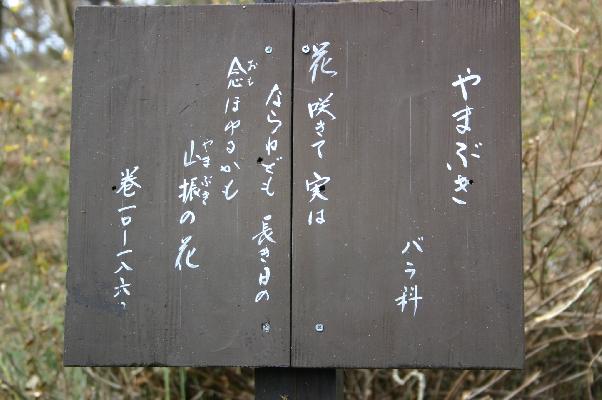 やまぶき
バラ科
花咲きて 実は
ならねども 長き日の
念ほゆるかも
おも
山振の花
やまぶき
巻一〇ー一八六〇